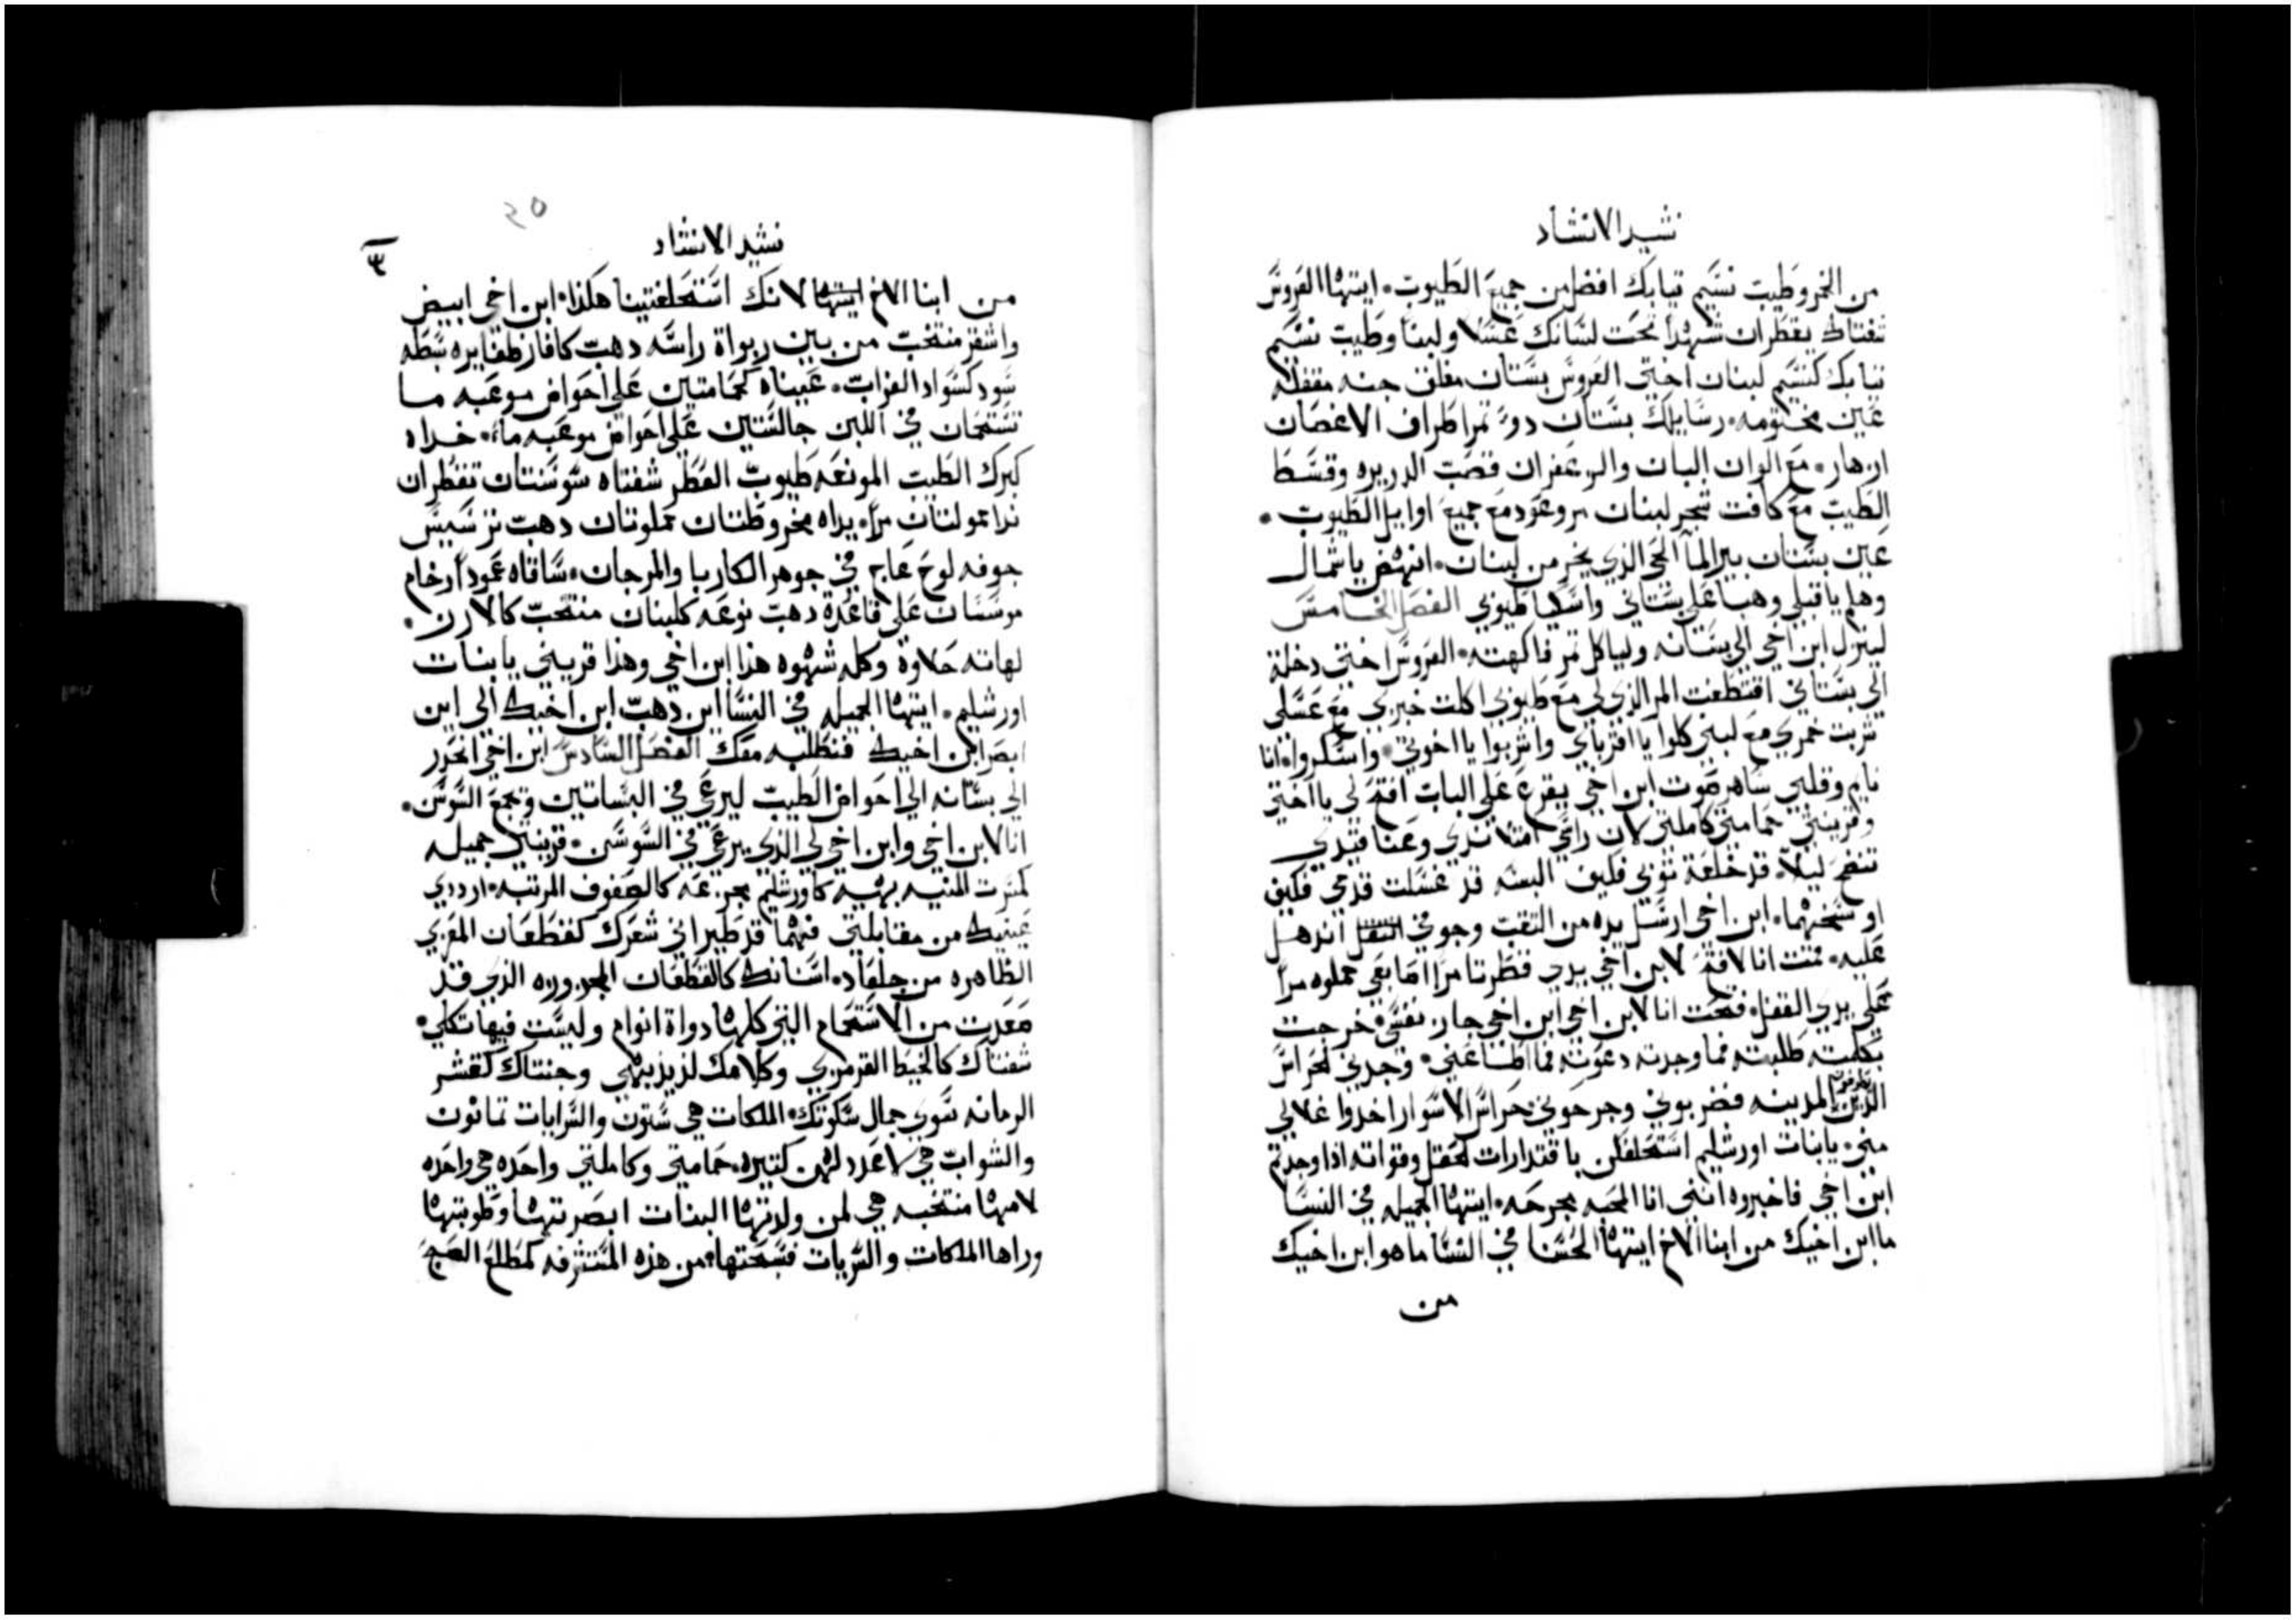 نشيد الانشاد
من الخمر وطيب نسيم تيابك افضل من جميع الطيوب. ايتها العروس
شفتاك يقطران شهدا تحت لسانك عسلا ولبنا وطيب نسيم
تيابك كنسيم لبنان اختي العروس بستان مغلق جنه مقفله
عين مختومه. رسايلك بستان دو تمر اطراف الاغصان
ازهار. مع الوان البان والزعفران قصب الدريره وقسط
الطيب مع كافت شجر لبنان مر وعود مع جميع اوايل الطيوب.
عين بستان بير الما الحي الذي يخر من لبنان. انهض يا شمال
وهلم يا قبلي وهب علي بستاني واسكب طيوبي الفصل الخامس
لينزل ابن اخي الي بستانه ولياكل تمر فاكهته. العروس اختي دخلة
الي بستاني اقتطفت المر الذي لي مع طيوبي اكلت خبزي مع عسلي
شربت خمري مع لبني كلوا يا اقرباي واشربوا يا اخوتي. واسكروا. انا
نايم وقلبي ساهر صوت ابن اخي يقرع علي الباب افتح لي يا اختي
وقرينتي حمامتي كاملتي لان راسي امتلا ندي وعنا قيدي
تنضح ليلا. قد خلعة توبي فكيف البسه قد غسلت قدمي فكيف
اوسخهما. ابن اخي ارسل يده من التقب وجوفي انذهل
عليه. قمت انا لافتح لابن اخي يدي قطرتا مرا اصابعي مملوه مرا
علي يدي القفل. فتحت انا لابن اخي ابن اخي جاز. نفسي خرجت
بكلمته طلبته فما وجدته دعوته فما اطاعني. وجدني الحراس
الذين يطوفون المدينه فضربوني وجرحوني حراس الاسوار اخدوا غلالي
مني. يا بنات اورشليم استحلفكن باقتدارات الحقل وقواته اذا وجدتم
ابن اخي فاخبروه انني انا المحبه مجرحه. ايتها الجميله في النسا
ما ابن اخيك من ابنا الاخ ايتها الحسنا في النسا ما هو ابن اخيك
من
٢٥
نشيد الانشاد
٣
من ابنا الاخ لانك استحلفتينا هكذا. ابن اخي ابيض
واشقر منتخب من بين ربواة راسه دهب كافاز ظفايره سبطه
سود كسواد الغراب. عيناه كحمامتين علي احواض موعبه ما
تستحمان في اللبن جالستين علي احواض موعبه ما. خداه
كبرك الطيب المونعه طيوب العطر شفتاه سوسنتان تقطران
ندا مولتان مرا. يداه مخروطتان مملوتان دهب ترسيس
جوفه لوح عاج في جوهر الكاربا والمرجان. ساقاه عمودا رخام
موسسان علي قاعدة دهب نوعه كلبنان منتخب كالارن.
لهاته حلاوة وكله شهوه هذا ابن اخي وهذا قريني يا بنات
اورشليم. ايتها الجميله في النسا اين دهب ابن اخيك الي اين
ابصر ابن اخيك فنطلبه معك الفصل السادس ابن اخي انحدر
الي بستانه الي احواض الطيب ليرعي في البساتين ويجمع السوسن.
انا لابن اخي وابن اخي لي الذي يرعي في السوسن. قرينتي جميله
كمسرت المنيه بهيه كاورشليم مجزعه كالصفوف المرتبه. ارددي
عينيك من مقابلتي فهما قد طيراني شعرك كقطعان المعزي
الظاهره من جلعاد. اسنانك كالقطعان المجزوزه الذي قد
صعدت من الاستحمام التي كلها دواة اتوام وليست فيها تكلي.
شفتاك كالخيط القرمزي وكلامك لذيذ بهي وجنتاك كقشر
الرمانه سوي جمال سكوتك. الملكات هي ستون والسرايات تمانون
والشواب هي لا عدد لهن كتيره. حمامتي وكاملتي واحده هي واحده
لامها منتخبه هي لمن ولدتها البنات ابصرتها وطوبتها
وراها الملكات والسريات فسبحتها. من هذه المتشرفه كمطلع الصبح